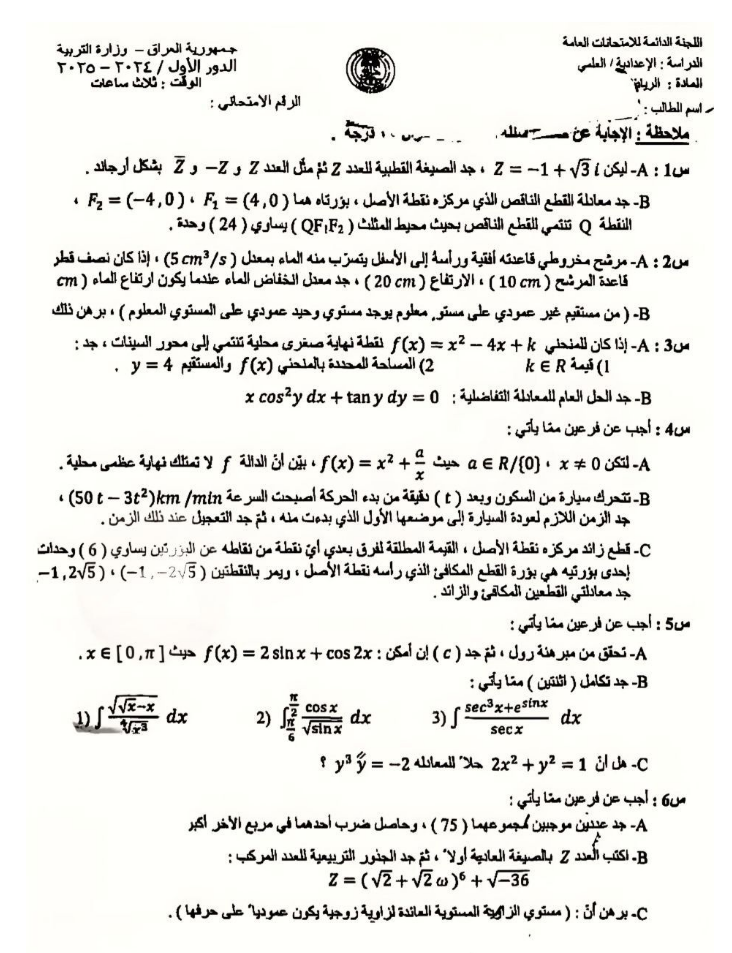 اللجنة الدائمة للامتحانات العامة
الدراسة : الإعدادية / العلمي
المادة :
اسم الطالب :
جمهورية العراق – وزارة التربية
الدور الأول / ٢٠٢٤ – ٢٠٢٥
الوقت : ثلاث ساعات
الرقم الامتحاني :
ملاحظة : الإجابة عن
س1 : A- ليكن Z = −1 + √3 i ، جد الصيغة القطبية للعدد Z ثم مثّل العدد Z و −Z و Z̅ بشكل أرجاند .
B- جد معادلة القطع الناقص الذي مركزه نقطة الأصل ، بؤرتاه هما F₁ = (4,0) ، F₂ = (−4,0) ،
النقطة Q تنتمي للقطع الناقص بحيث محيط المثلث ( QF₁F₂ ) يساوي ( 24 ) وحدة .
س2 : A- مرشح مخروطي قاعدته أفقية ورأسه إلى الأسفل يتسرّب منه الماء بمعدل ( 5 cm³/s ) ، إذا كان نصف قطر
قاعدة المرشح ( 10 cm ) ، الارتفاع ( 20 cm ) ، جد معدل انخفاض الماء عندما يكون ارتفاع الماء ( cm
B- ( من مستقيم غير عمودي على مستوٍ معلوم يوجد مستوي وحيد عمودي على المستوي المعلوم ) ، برهن ذلك
س3 : A- إذا كان للمنحني f(x) = x² − 4x + k نقطة نهاية صغرى محلية تنتمي إلى محور السينات ، جد :
1) قيمة k ∈ R 2) المساحة المحددة بالمنحني f(x) والمستقيم y = 4 .
B- جد الحل العام للمعادلة التفاضلية : x cos²y dx + tan y dy = 0
س4 : أجب عن فرعين ممّا يأتي :
A- لتكن f(x) = x² + a/x ، حيث a ∈ R/{0} ، x ≠ 0 ، بيّن أنّ الدالة f لا تمتلك نهاية عظمى محلية .
B- تتحرك سيارة من السكون وبعد ( t ) دقيقة من بدء الحركة أصبحت السرعة (50 t − 3t²)km /min ،
جد الزمن اللازم لعودة السيارة إلى موضعها الأول الذي بدءت منه ، ثم جد التعجيل عند ذلك الزمن .
C- قطع زائد مركزه نقطة الأصل ، القيمة المطلقة لفرق بعدي أيّ نقطة من نقاطه عن البؤرتين يساوي ( 6 ) وحدات
إحدى بؤرتيه هي بؤرة القطع المكافئ الذي رأسه نقطة الأصل ، ويمر بالنقطتين (−1, −2√5 ) ، ( −1, 2√5
جد معادلتي القطعين المكافئ والزائد .
س5 : أجب عن فرعين ممّا يأتي :
A- تحقق من مبرهنة رول ، ثم جد ( c ) إن أمكن : f(x) = 2 sin x + cos 2x حيث x ∈ [ 0 , π ] .
B- جد تكامل ( اثنتين ) ممّا يأتي :
1) ∫ √(√x−x) / ⁴√x³ dx 2) ∫_{π/6}^{π/2} cos x / √sin x dx 3) ∫ (sec³x+e^{sinx}) / sec x dx
C- هل أنّ 2x² + y² = 1 حلاً للمعادله y³ y″ = −2 ؟
س6 : أجب عن فرعين ممّا يأتي :
A- جد عددين موجبين مجموعهما ( 75 ) ، وحاصل ضرب أحدهما في مربع الأخر أكبر
B- اكتب العدد Z بالصيغة العادية أولاً ، ثم جد الجذور التربيعية للعدد المركب :
Z = ( √2 + √2 ω )⁶ + √−36
C- برهن أنّ : ( مستوي الزاوية المستوية العائدة لزاوية زوجية يكون عمودياً على حرفها ) .